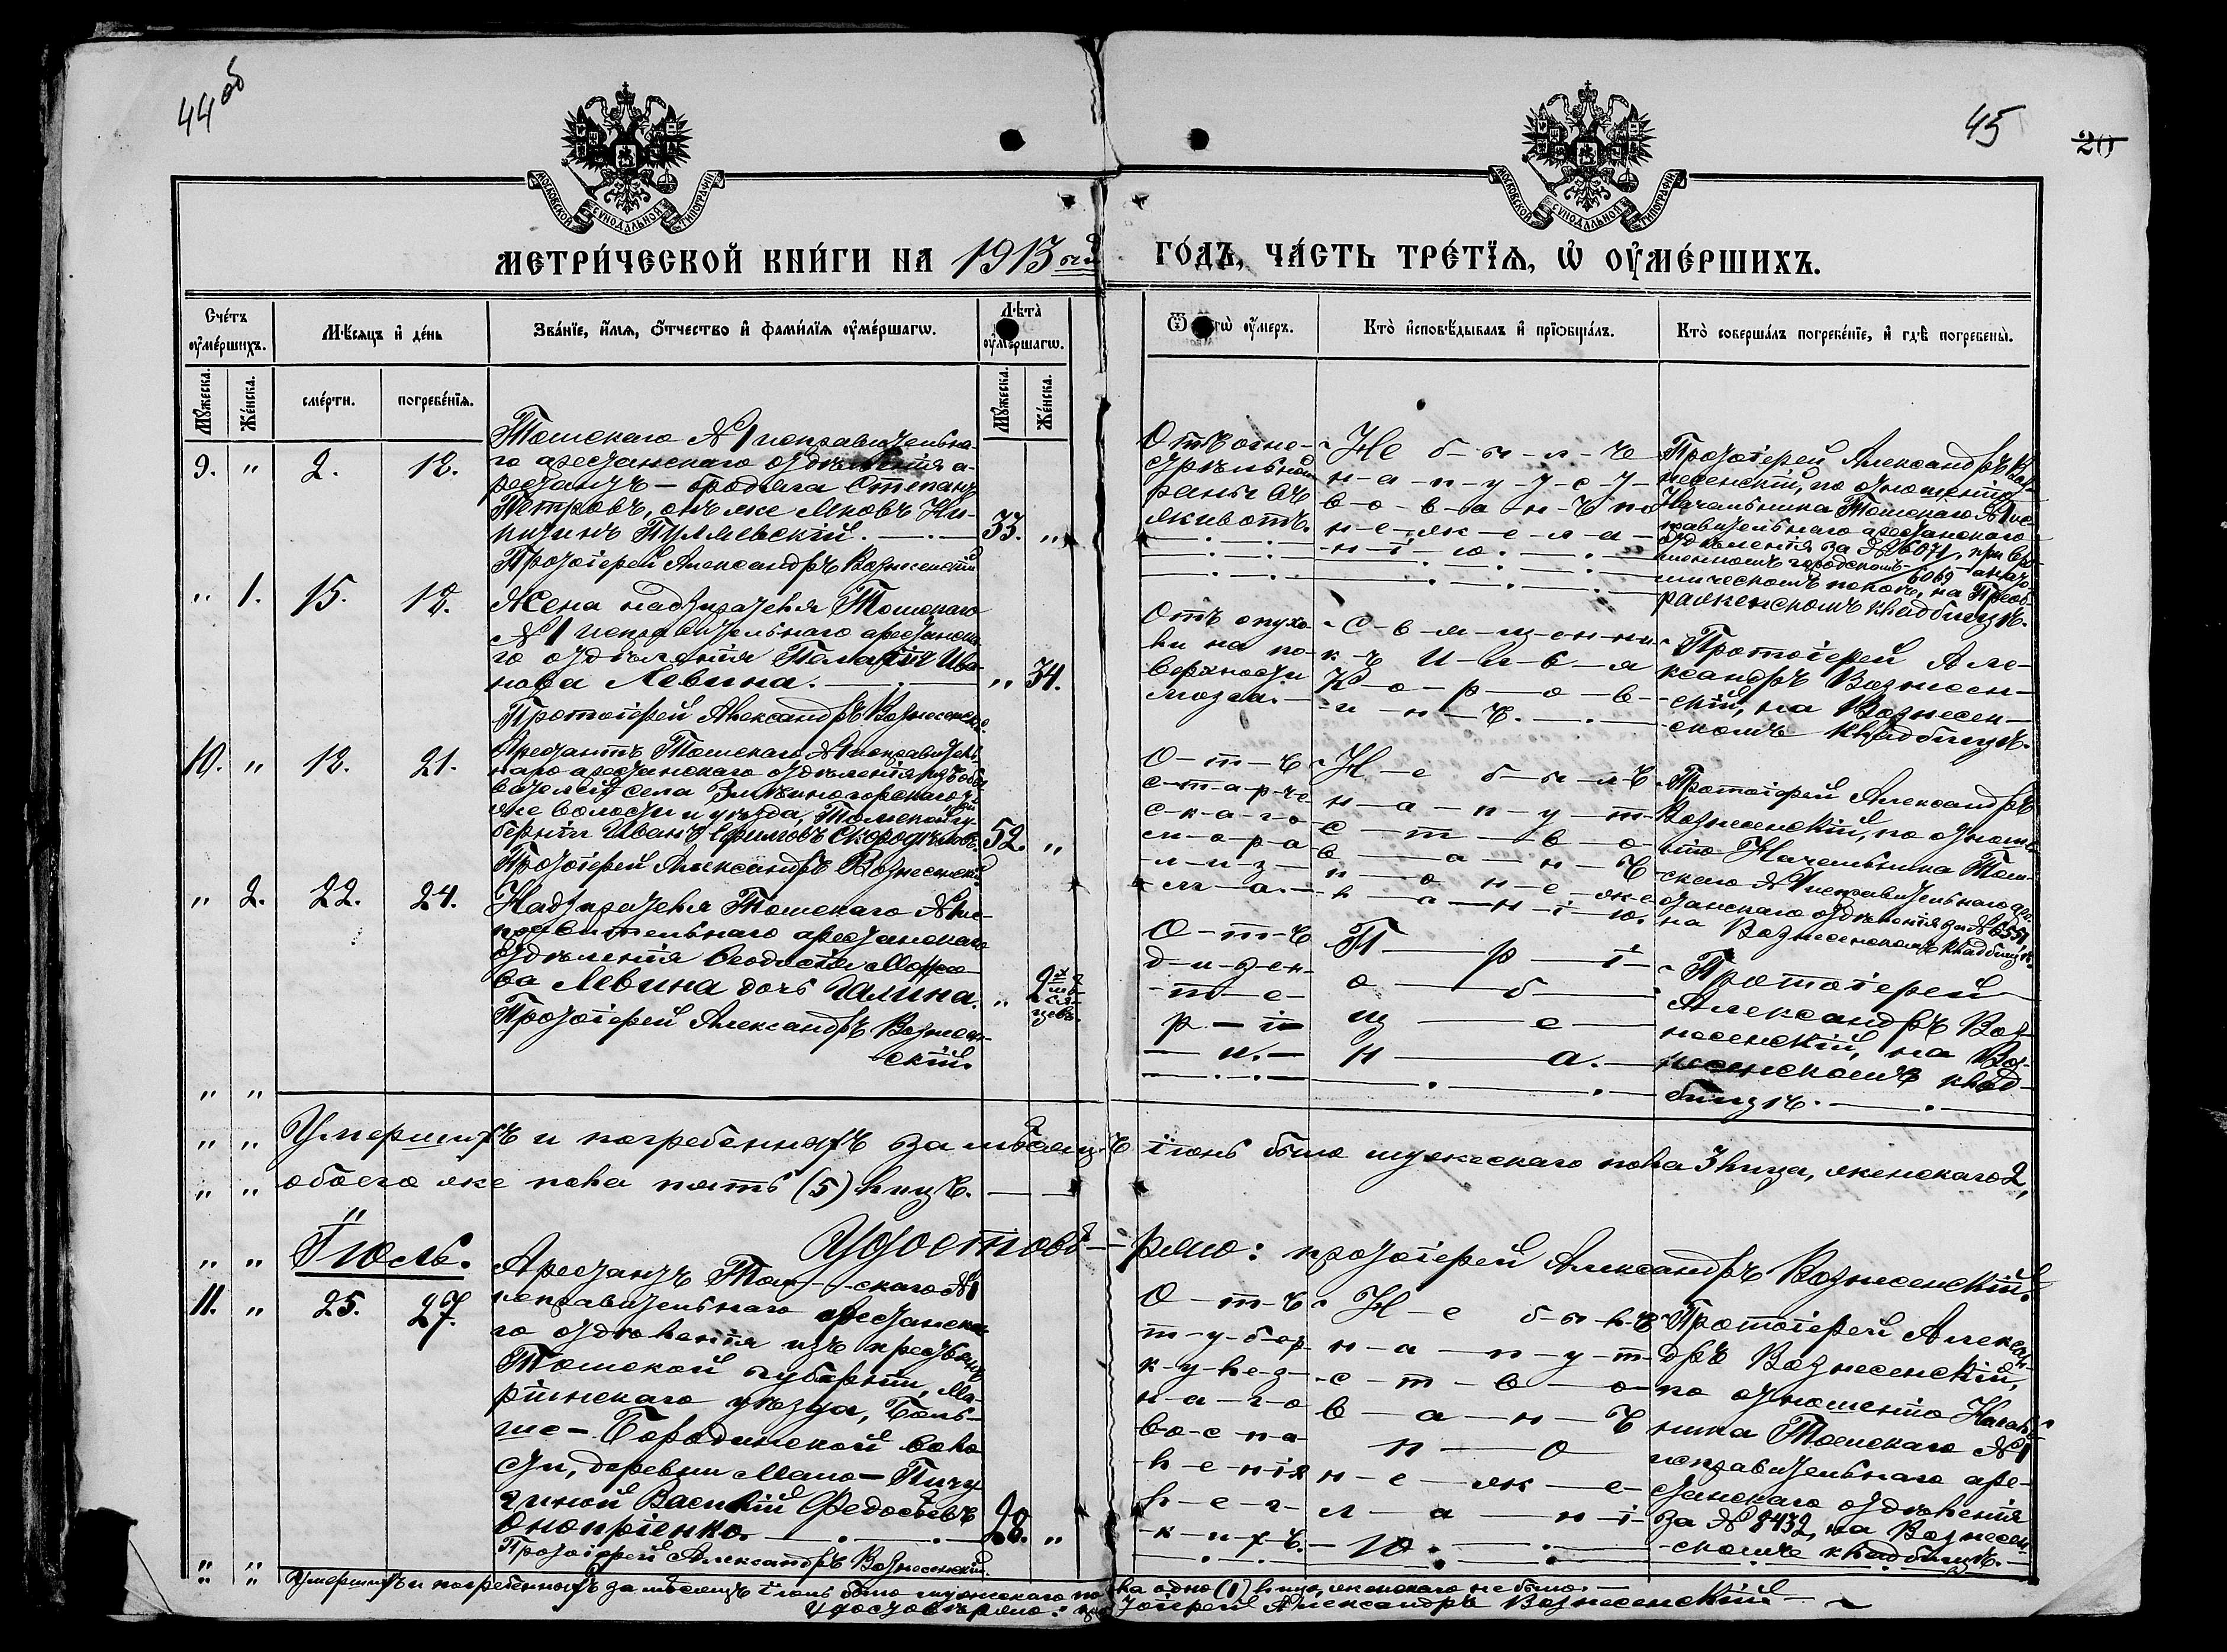 44 об
45
20
МОСКОВСКОЙ СѴНОДАЛЬНОЙ ТИПОГРАФІИ
МОСКОВСКОЙ СѴНОДАЛЬНОЙ ТИПОГРАФІИ
МЕТРИ́ЧЕСКОЙ КНИ́ГИ НА 1913ый ГО́ДЪ, ЧА́СТЬ ТРЕ́ТЇѦ, Ѡ҆ ОУ҆МЕ́РШИХЪ.
Сче́тъ оу҆ме́ршихъ.
Мѣ́сяцъ и҆ де́нь
Зва́нїе, и҆́мя, ѻ҆́тчество и҆ фами́лїя оу҆ме́ршагѡ.
Лѣта̀ оу҆ме́ршагѡ.
Ѿ оу҆́меръ.
Кто̀ и҆сповѣ́дывалъ и҆ прїѡбща́лъ.
Кто̀ соверша́лъ погребе́нїе, и҆ гдѣ̀ погребены̀.
Мꙋ́жеска.
Же́нска.
сме́рти.
погребе́нїя.
Мꙋ́жеска.
Же́нска.
9. " 2. 12.
Томскаго №1 исправительна-
го арестанскаго отдѣленія а-
рестантъ - бродяга Степанъ
Петровъ, онъ же Яковъ Ни-
китинъ
33. "
Протоіерей Александръ Вознесенскій
Отъ огне-
стрѣльной
раны въ
животъ.
Не б-ы-л-ъ
н-а-п-у-т-с-т-
в-о-в-а-н-ъ по
н-е-ж-е-л-а-
н-і-ю.
Протоіерей Александръ Воз-
несенскій, по отношенію
Начальника Томскаго №1 ис-
правительнаго арестанскаго
отдѣленія за № 6071, при
городскомъ
6069
покоѣ, на Преоб-
раженскомъ кладбищѣ.
" 1. 15. 18.
Жена надзирателя Томскаго
№1 исправительнаго арестанска-
го отдѣленія Пелагія Ива-
нова Левина.
" 34.
Протоіерей Александръ Вознесенскій
Отъ опухо-
ли на по-
верхности
мозга.
С-в-я-щ-ен-ни-
к-ъ И-л-ь-я
К-о-р-о-в-
и-н-ъ.
Протоіерей Але-
ксандръ Вознесен-
скій, на Вознесен-
скомъ кладбищѣ.
10. " 18. 21.
Арестантъ Томскаго №1 исправитель-
наго арестанскаго отдѣленія изъ обы-
вателей села Змѣиногорскаго той
же волости и уѣзда, Томской гу-
берніи Иванъ Ефимовъ Скородумовъ.
52. "
Протоіерей Александръ Вознесенскій
О-т-ъ
с-т-а-р-че-
с-к-а-го
м-а-р-а-
л-и-з-
м-а.
Н-е б-ы-л-ъ
н-а-п-у-т-
с-т-в-о-
в-а-н-ъ
п-о н-е-ж-е-
л-а-н-і-ю.
Протоіерей Александръ
Вознесенскій, по отноше-
нію Начальника Том-
скаго №1 исправительнаго аре-
станскаго отдѣленія за № 6551,
на Вознесенскомъ кладбищѣ.
" 2. 22. 24.
Надзирателя Томскаго №1 ис-
правительнаго арестанскаго
отдѣленія Ѳеодосія
Левина дочь Галина.
" 2х мѣ-
ся-
цевъ.
Протоіерей Александръ Вознесен-
скій.
О-т-ъ
д-и-зен-
т-е-
р-і-
и.
П-р-і-
о-б-
щ-е-
н-а.
Протоіерей
Александръ Воз-
несенскій, на Воз-
несенскомъ клад-
бищѣ.
Умершихъ и погребенныхъ за мѣсяцъ іюнь было мужескаго пола 3 лица, женскаго 2,
обоего же пола пять (5) лицъ.
Удостовѣ-ряю: протоіерей Александръ Вознесенскій.
Іюль.
11. " 25. 27.
Арестантъ Том-скаго №1
исправительнаго арестанска-
го отдѣленія изъ крестьянъ
Томской губерніи, Ма-
ріинскаго уѣзда, Боль-
ше-Бородинской воло-
сти, деревни Мало-Пичу
гиной Василій Федосѣевъ
Оноприенко.
28. "
Протоіерей Александръ Вознесенскій.
О-т-ъ
т-у-б-ер-
к-у-ле-з-
н-а-г-о
во-с-па-
л-е-нія
л-е-г-
к-и-х-ъ.
Н-е б-ы-л-ъ
н-а-п-у-т-
с-т-в-о-
в-а-н-ъ
п-о
н-е-ж-е-
л-а-н-і-
ю.
Протоіерей Алексан-
дръ Вознесенскій,
по отношенію Началь-
ника Томскаго №1
исправительнаго аре-
станскаго отдѣленія
за № 8432, на Вознесен-
скомъ кладбищѣ.
Умершихъ и погребенныхъ за мѣсяцъ іюль было мужескаго пола одно (1) лицо, женскаго не было.
Удостовѣряю: протоіерей Александръ Вознесенскій